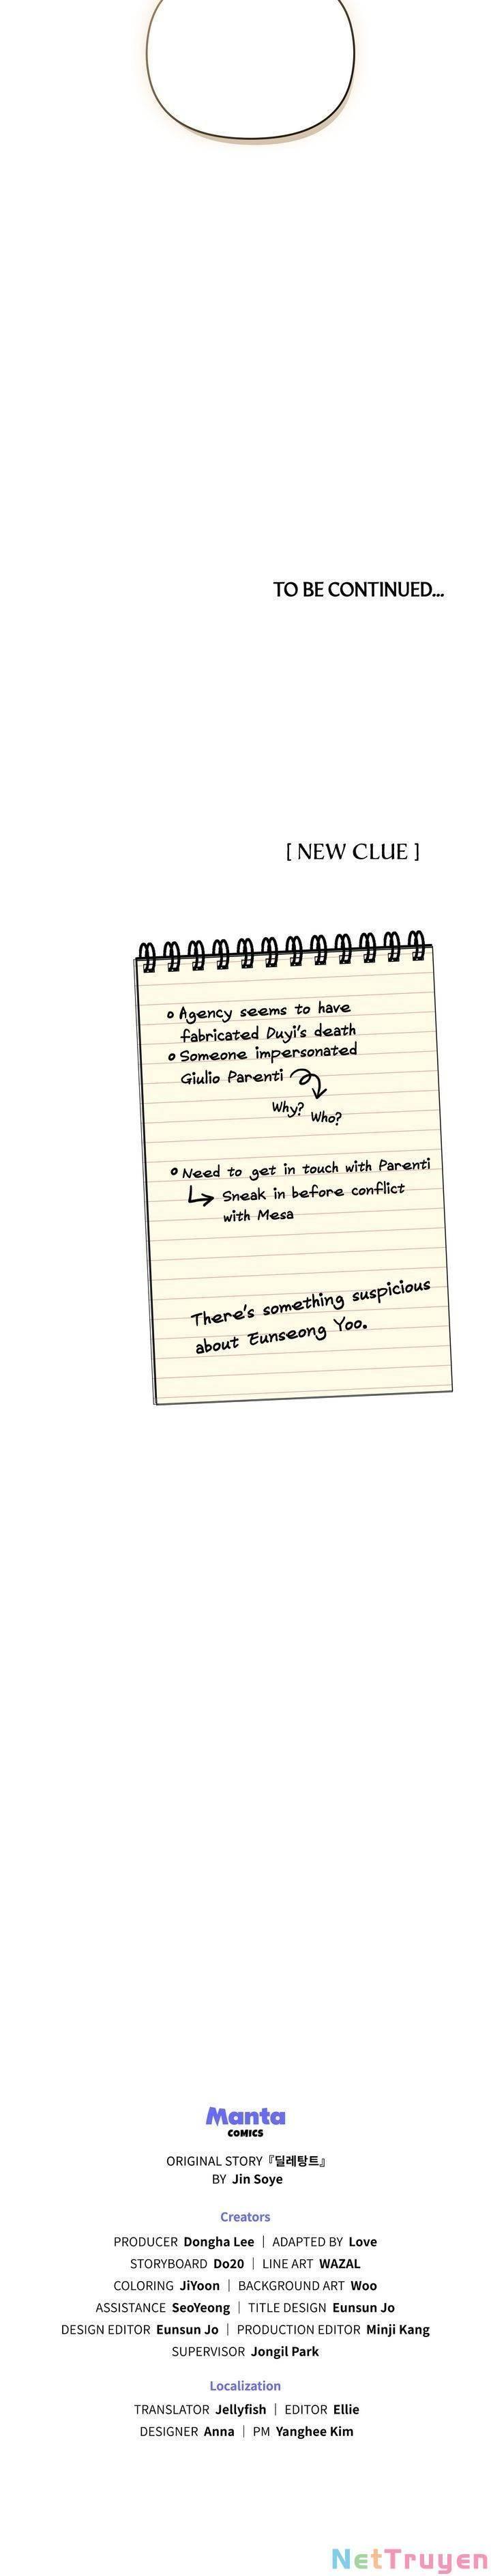 TO BE CONTINUED...
[ NEW CLUE ]
Agency seems to have
fabricated Duyi's death
Someone impersonated
Giulio Parenti
Why?
Who?
Need to get in touch with Parenti
Sneak in before conflict
with Mesa
There's something suspicious
about Eunseong Yoo.
Manta
COMICS
ORIGINAL STORY『딜레탕트』
BY Jin Soye
Creators
PRODUCER Dongha Lee | ADAPTED BY Love
STORYBOARD Do20 | LINE ART WAZAL
COLORING JiYoon | BACKGROUND ART Woo
ASSISTANCE SeoYeong | TITLE DESIGN Eunsun Jo
DESIGN EDITOR Eunsun Jo | PRODUCTION EDITOR Minji Kang
SUPERVISOR Jongil Park
Localization
TRANSLATOR Jellyfish | EDITOR Ellie
DESIGNER Anna | PM Yanghee Kim
NetTruyen